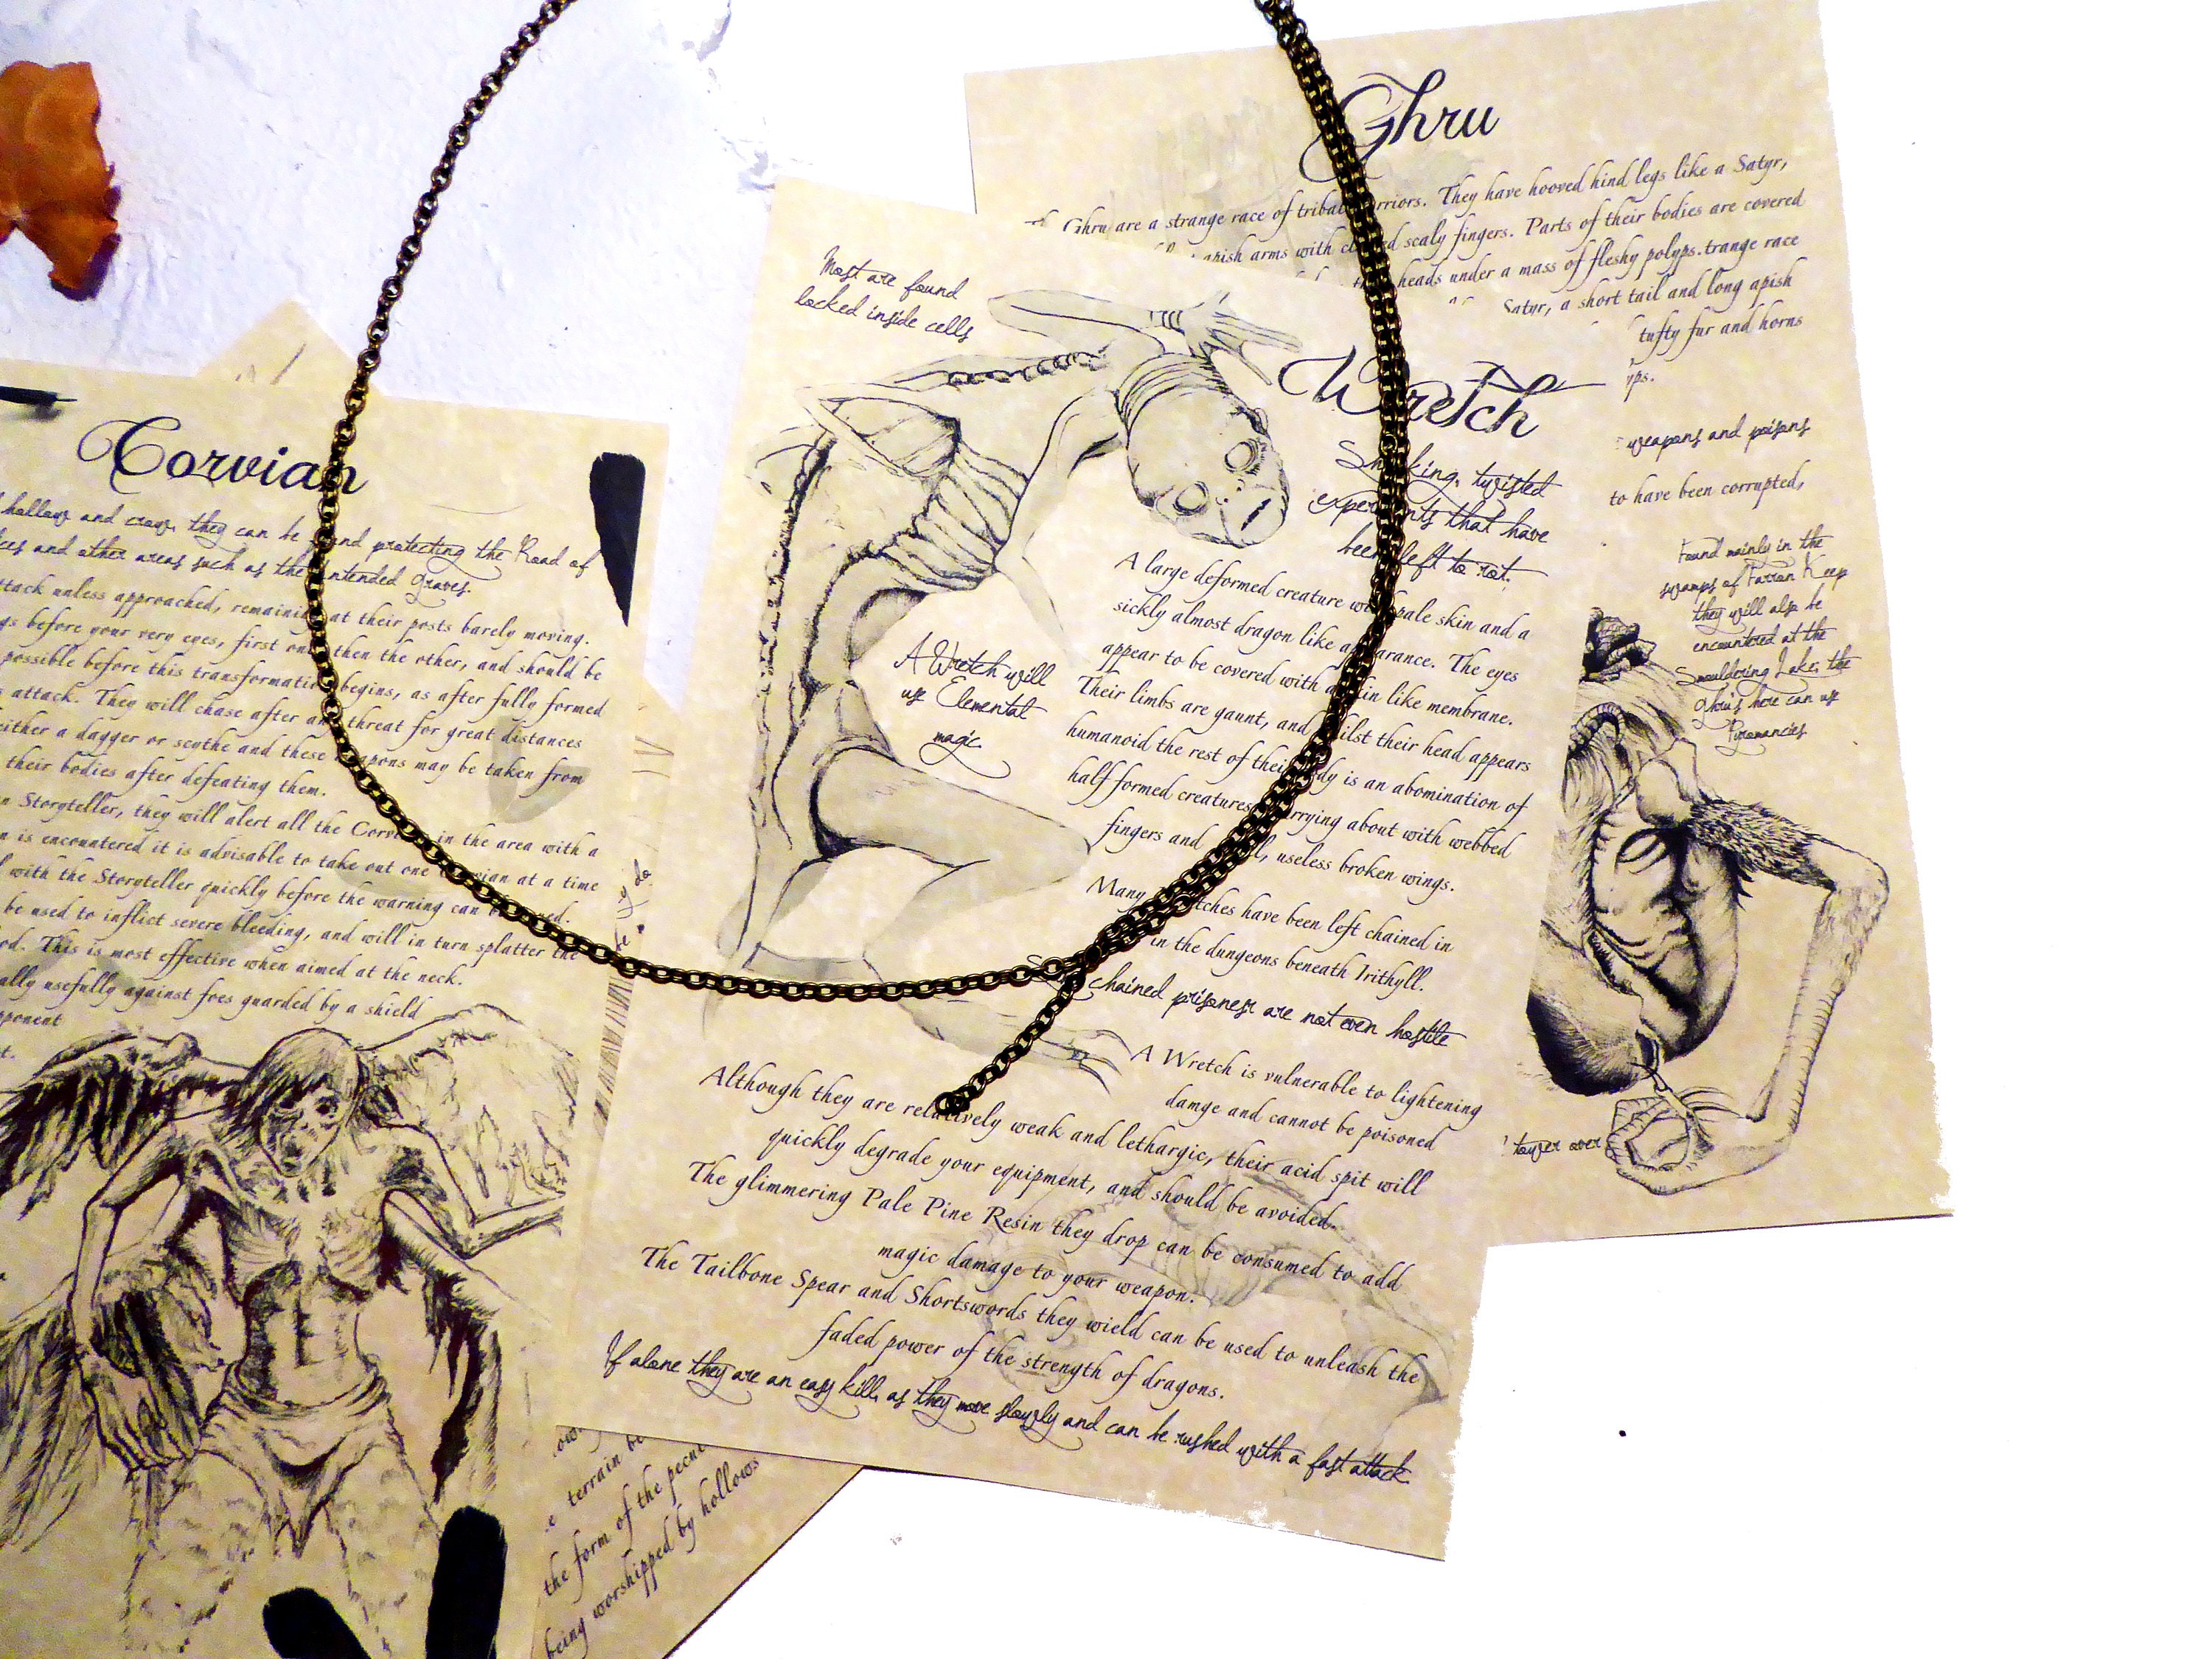 Ghru
Ghru are a strange race of tribal warriors. They have hooved hind legs like a Satyr,
apish arms with scaly fingers. Parts of their bodies are covered
heads under a mass of fleshy polyps.trange race
Satyr, a short tail and long apish
tufty fur and horns
weapons and poisons
to have been corrupted,
Found mainly in the
swamps of Farron Keep
they will also be
encountered at the
Smouldering Lake, the
Ghru's here can use
Pyromancies
tower over
Most are found
locked inside cells
Wretch
twisted
that have
been left to rot.
A large deformed creature with pale skin and a
sickly almost dragon like appearance. The eyes
appear to be covered with a skin like membrane.
Their limbs are gaunt, and whilst their head appears
humanoid the rest of their body is an abomination of
half formed creatures, about with webbed
fingers and useless broken wings.
A Wretch will
use Elemental
magic
Many Wretches have been left chained in
in the dungeons beneath Irithyll.
chained prisoners are not even hostile
A Wretch is vulnerable to lightening
damge and cannot be poisoned
Although they are relatively weak and lethargic, their acid spit will
quickly degrade your equipment, and should be avoided.
The glimmering Pale Pine Resin they drop can be consumed to add
magic damage to your weapon.
The Tailbone Spear and Shortswords they wield can be used to unleash the
faded power of the strength of dragons.
If alone they are an easy kill, as they move slowly and can be rushed with a fast attack.
Corvian
hollow and crow, they can be found protecting the Road of
and other areas such as the Untended Graves.
attack unless approached, remaining at their posts barely moving.
before your very eyes, first one then the other, and should be
possible before this transformation begins, as after fully formed
attack. They will chase after any threat for great distances
either a dagger or scythe and these weapons may be taken from
their bodies after defeating them.
Storyteller, they will alert all the Corvians in the area with a
is encountered it is advisable to take out one Corvian at a time
with the Storyteller quickly before the warning can be
be used to inflict severe bleeding, and will in turn splatter the
This is most effective when aimed at the neck.
usefully against foes guarded by a shield
terrain
the form of the
being worshipped by hollows